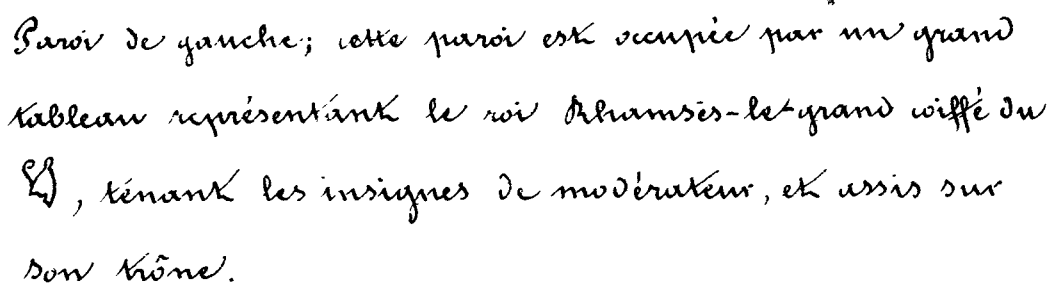 Paroi de gauche; cette paroi est occupée par un grand
tableau représentant le roi Rhamsès-le-grand coiffé du
, tenant les insignes de modérateur, et assis sur
son trône.